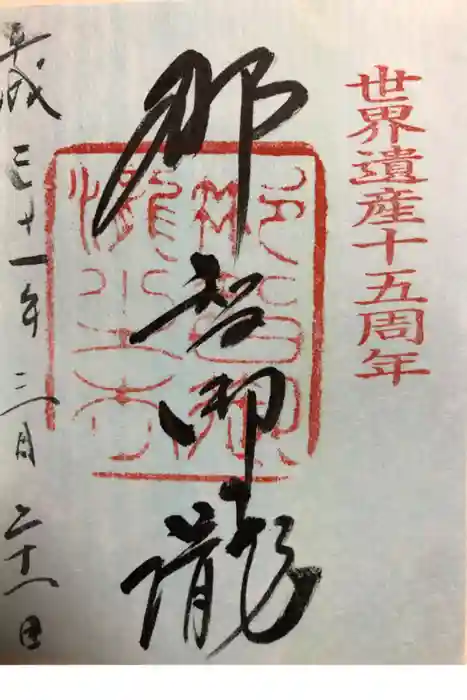 世界遺産十五周年
那智御瀧
平成三十一年三月二十八日